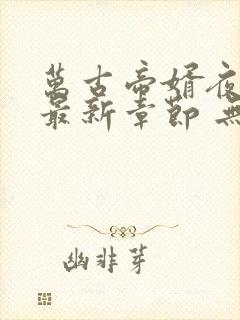 萬古帝婿夜
最新章節 無
幽非芽